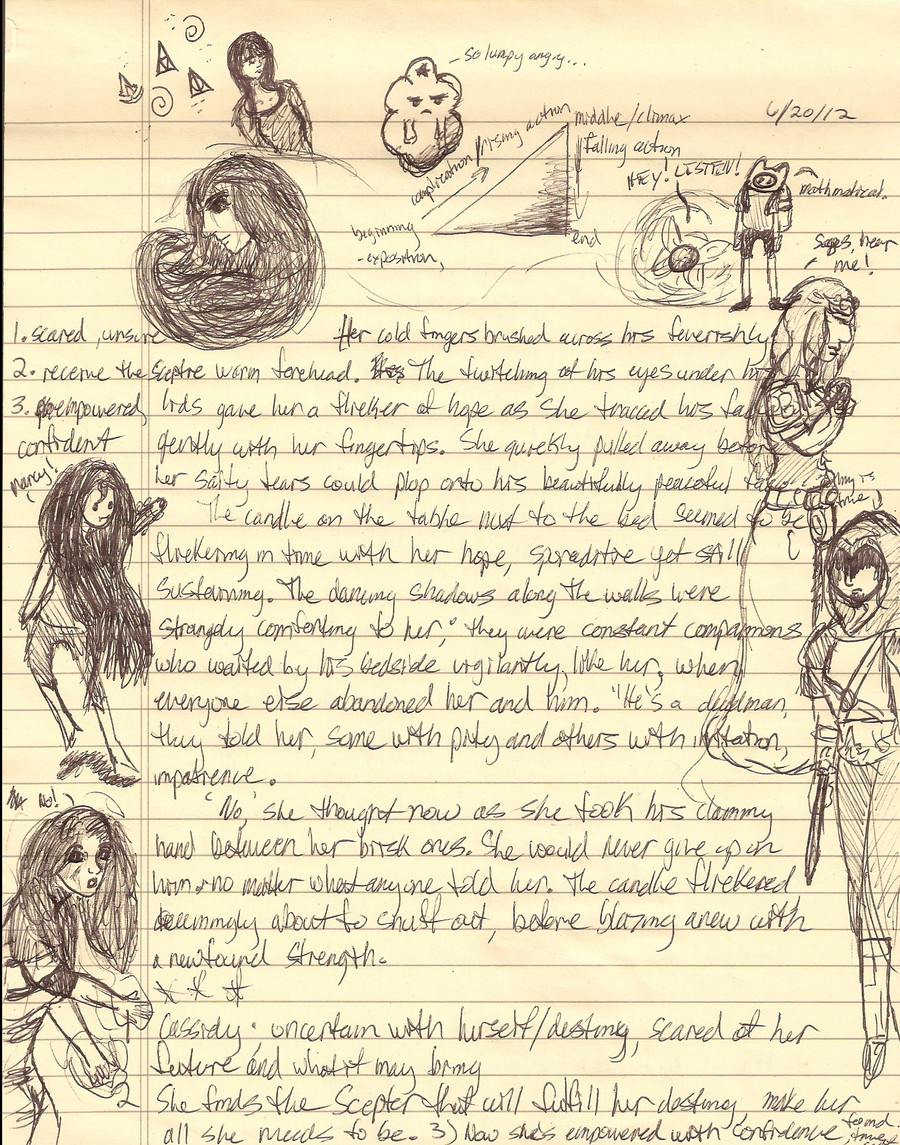 so lumpy angry...
6/20/12
complication/rising action
middle/climax
falling action
HEY! LISTEN!
mathmatical.
beginning
-exposition,
end
Sages, hear
me!
1. scared, unsure
2. receive the Sceptre
3. empowered,
confident
Her cold fingers brushed across his feverishly
warm forehead. The twitching of his eyes under his
lids gave her a flicker of hope as she traced his face
gently with her fingertips. She quickly pulled away before
her salty tears could plop onto his beautifully peaceful face.
The candle on the table next to the bed seemed to be
flickering in time with her hope, yet still
sustaining. The dancing shadows along the walls were
strangely comforting to her, they were constant companions
who waited by his bedside vigilantly, like her, when
everyone else abandoned her and him. "He's a deadman,
they told her, some with pity and others with irritation,
impatience.
'No,' she thought now as she took his clammy
hand between her brisk ones. She would never give up on
him no matter what anyone told her. The candle flickered
seemingly about to snuff out, before blazing anew with
a newfound strength.
* * *
Cassidy: uncertain with herself/destiny, scared of her
future and what it may bring
2 She finds the Scepter that will fulfill her destiny, make her
all she needs to be. 3) Now she's empowered with confidence
found
No!